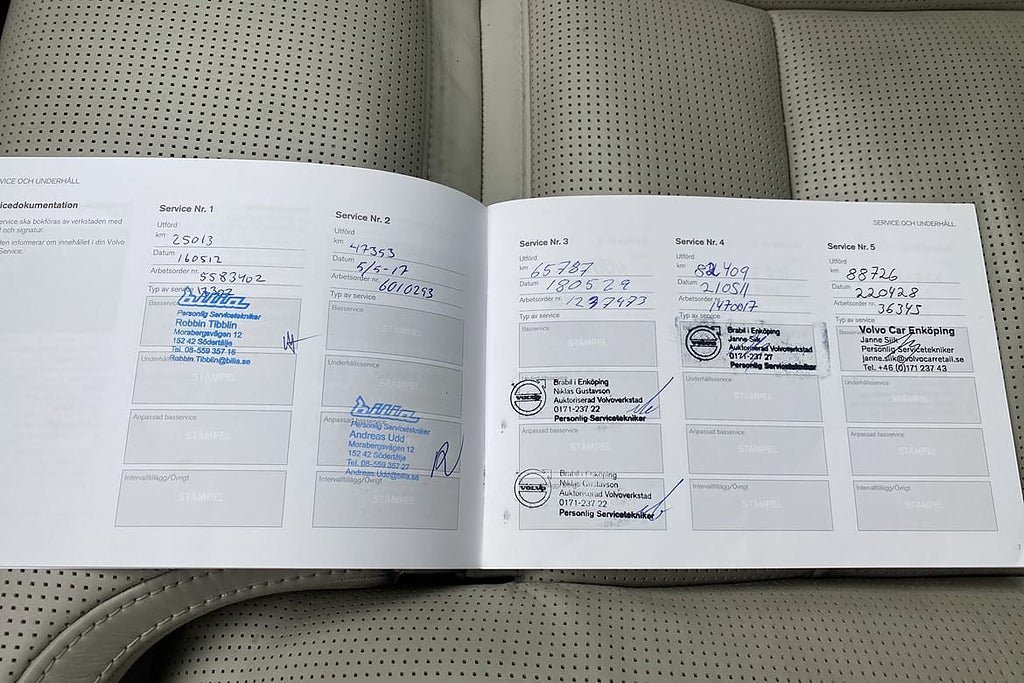 VICE OCH UNDERHÅLL
icedokumentation
ervice ska bokföras av verkstaden med
l och signatur.
en informerar om innehållet i din Volvo
Service.
Service Nr. 1
Utförd
km 25013
Datum 160512
Arbetsorder nr. 5583402
Typ av service
Basservice
Bilia
Personlig Servicetekniker
Robbin Tibblin
Morabergsvägen 12
152 42 Södertälje
Tel. 08-559 357 16
Robbin.Tibblin@bilia.se
Underhållsservice
STÄMPEL
Anpassad basservice
STÄMPEL
Intervalltillägg/Övrigt
STÄMPEL
Service Nr. 2
Utförd
km 47353
Datum 5/5-17
Arbetsorder nr. 6010293
Typ av service
Basservice
STÄMPEL
Underhållsservice
STÄMPEL
Anpassad basservice
Bilia
Personlig Servicetekniker
Andreas Udd
Morabergsvägen 12
152 42 Södertälje
Tel. 08-559 357 27
Andreas.Udd@bilia.se
Intervalltillägg/Övrigt
STÄMPEL
SERVICE OCH UNDERHÅLL
Service Nr. 3
Utförd
km 65787
Datum 180529
Arbetsorder nr.
Typ av service
Basservice
STÄMPEL
VOLVO
Brabil i Enköping
Niklas Gustavson
Auktoriserad Volvoverkstad
0171-237 22
Personlig Servicetekniker
Anpassad basservice
STÄMPEL
VOLVO
Brabil i Enköping
Niklas Gustavson
Auktoriserad Volvoverkstad
0171-237 22
Personlig Servicetekniker
Service Nr. 4
Utförd
km 82409
Datum 210511
Arbetsorder nr. 1470017
Typ av service
VOLVO
Brabil i Enköping
Janne Siik
Auktoriserad Volvoverkstad
0171-237 27
Personlig Servicetekniker
Underhållsservice
STÄMPEL
Anpassad basservice
STÄMPEL
Intervalltillägg/Övrigt
STÄMPEL
Service Nr. 5
Utförd
km 88726
Datum 220428
Arbetsorder nr. 36345
Typ av service
Volvo Car Enköping
Janne Siik
Personlig Servicetekniker
janne.siik@volvocarretail.se
Tel. +46 (0)171 237 43
Underhållsservice
STÄMPEL
Anpassad basservice
STÄMPEL
Intervalltillägg/Övrigt
STÄMPEL
7